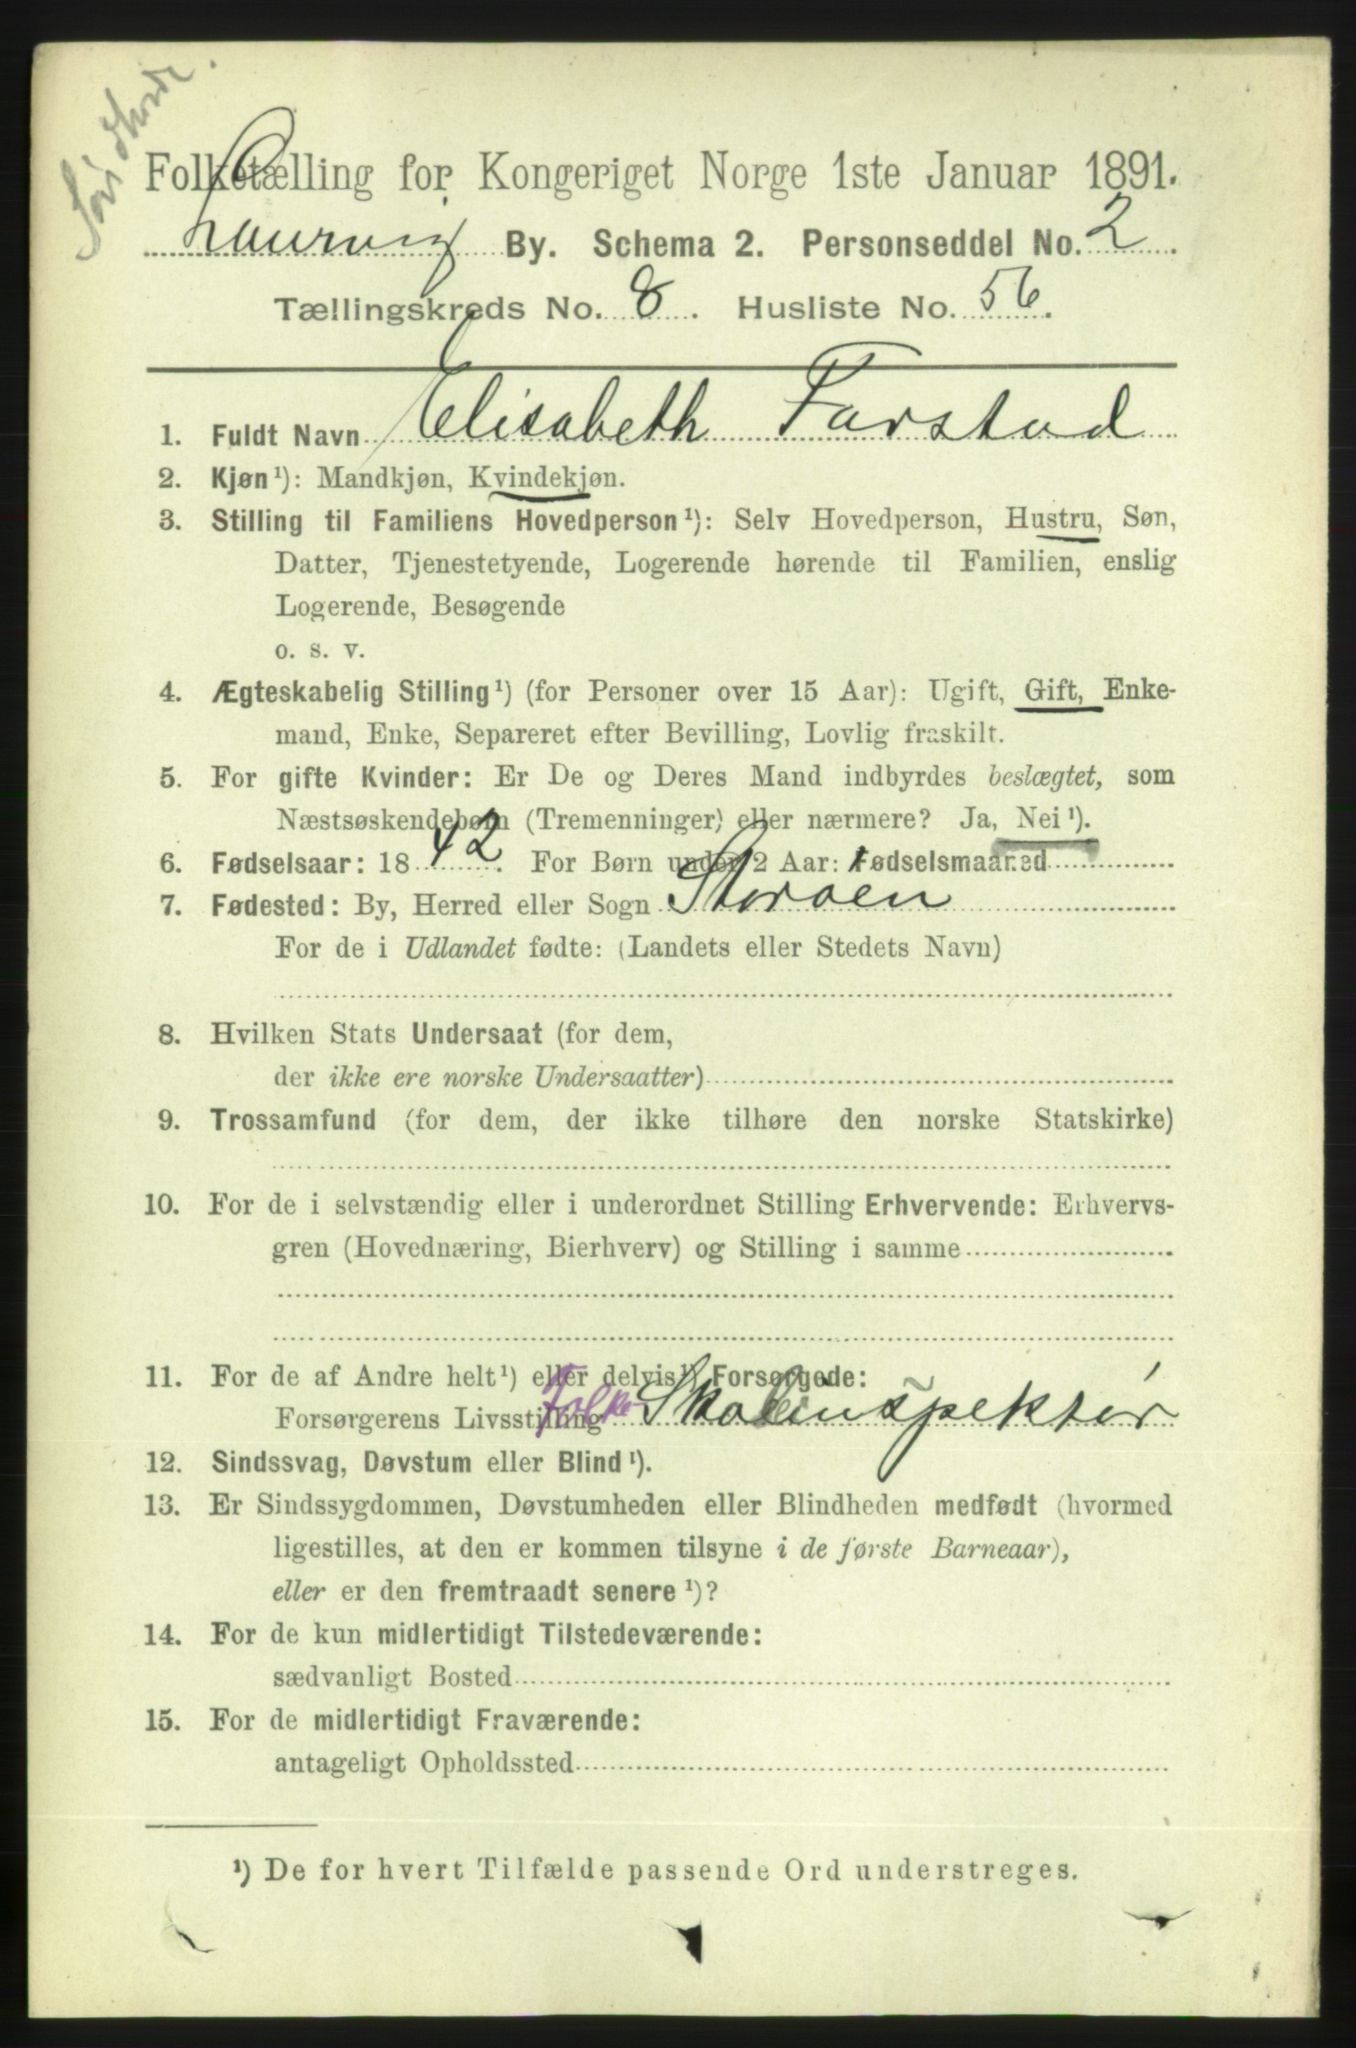 Folketælling for Kongeriget Norge 1ste Januar 1891.
Laurvig By. Schema 2. Personseddel No. 2.
Tællingskreds No. 8. Husliste No. 56.
1. Fuldt Navn Elisabeth Farstad
2. Kjøn¹): Mandkjøn, Kvindekjøn.
3. Stilling til Familiens Hovedperson¹): Selv Hovedperson, Hustru, Søn,
Datter, Tjenestetyende, Logerende hørende til Familien, enslig
Logerende, Besøgende
o. s. v.
4. Ægteskabelig Stilling¹) (for Personer over 15 Aar): Ugift, Gift, Enke-
mand, Enke, Separeret efter Bevilling, Lovlig fraskilt.
5. For gifte Kvinder: Er De og Deres Mand indbyrdes beslægtet, som
Næstsøskendebørn (Tremenninger) eller nærmere? Ja, Nei¹).
6. Fødselsaar: 1842. For Børn under 2 Aar: Fødselsmaaned
7. Fødested: By, Herred eller Sogn Storøen
For de i Udlandet fødte: (Landets eller Stedets Navn)
8. Hvilken Stats Undersaat (for dem,
der ikke ere norske Undersaatter)
9. Trossamfund (for dem, der ikke tilhøre den norske Statskirke)
10. For de i selvstændig eller i underordnet Stilling Erhvervende: Erhvervs-
gren (Hovednæring, Bierhverv) og Stilling i samme
11. For de af Andre helt¹) eller delvis¹) Forsørgede:
Forsørgerens Livsstilling Folke Skoleinspektør
12. Sindssvag, Døvstum eller Blind¹).
13. Er Sindssygdommen, Døvstumheden eller Blindheden medfødt (hvormed
ligestilles, at den er kommen tilsyne i de første Barneaar),
eller er den fremtraadt senere¹)?
14. For de kun midlertidigt Tilstedeværende:
sædvanligt Bosted
15. For de midlertidigt Fraværende:
antageligt Opholdssted
¹) De for hvert Tilfælde passende Ord understreges.